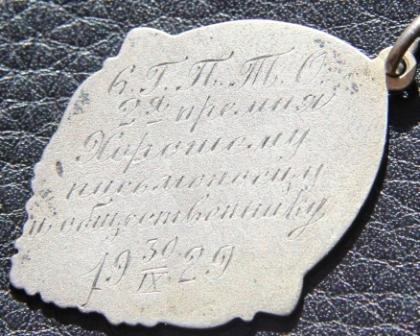 С. Г. П. Т. О.
2я премия
Хорошему
письмоносцу
и общественнику
19 30/IX 29